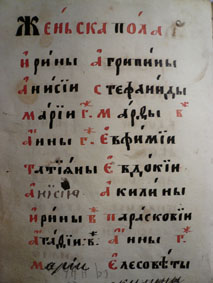 Женьска пола
Ирины Агрипины
Анисїи Стефаниды
Марїи г҃. Марѳы в҃
Анны г҃. Еѵфимїи
Татїаны Евдокїи
Анисїи Акилины
Ирины в҃ Парасковїи
Агаѳїи в҃. Анны г҃.
Марїи Елесоветы